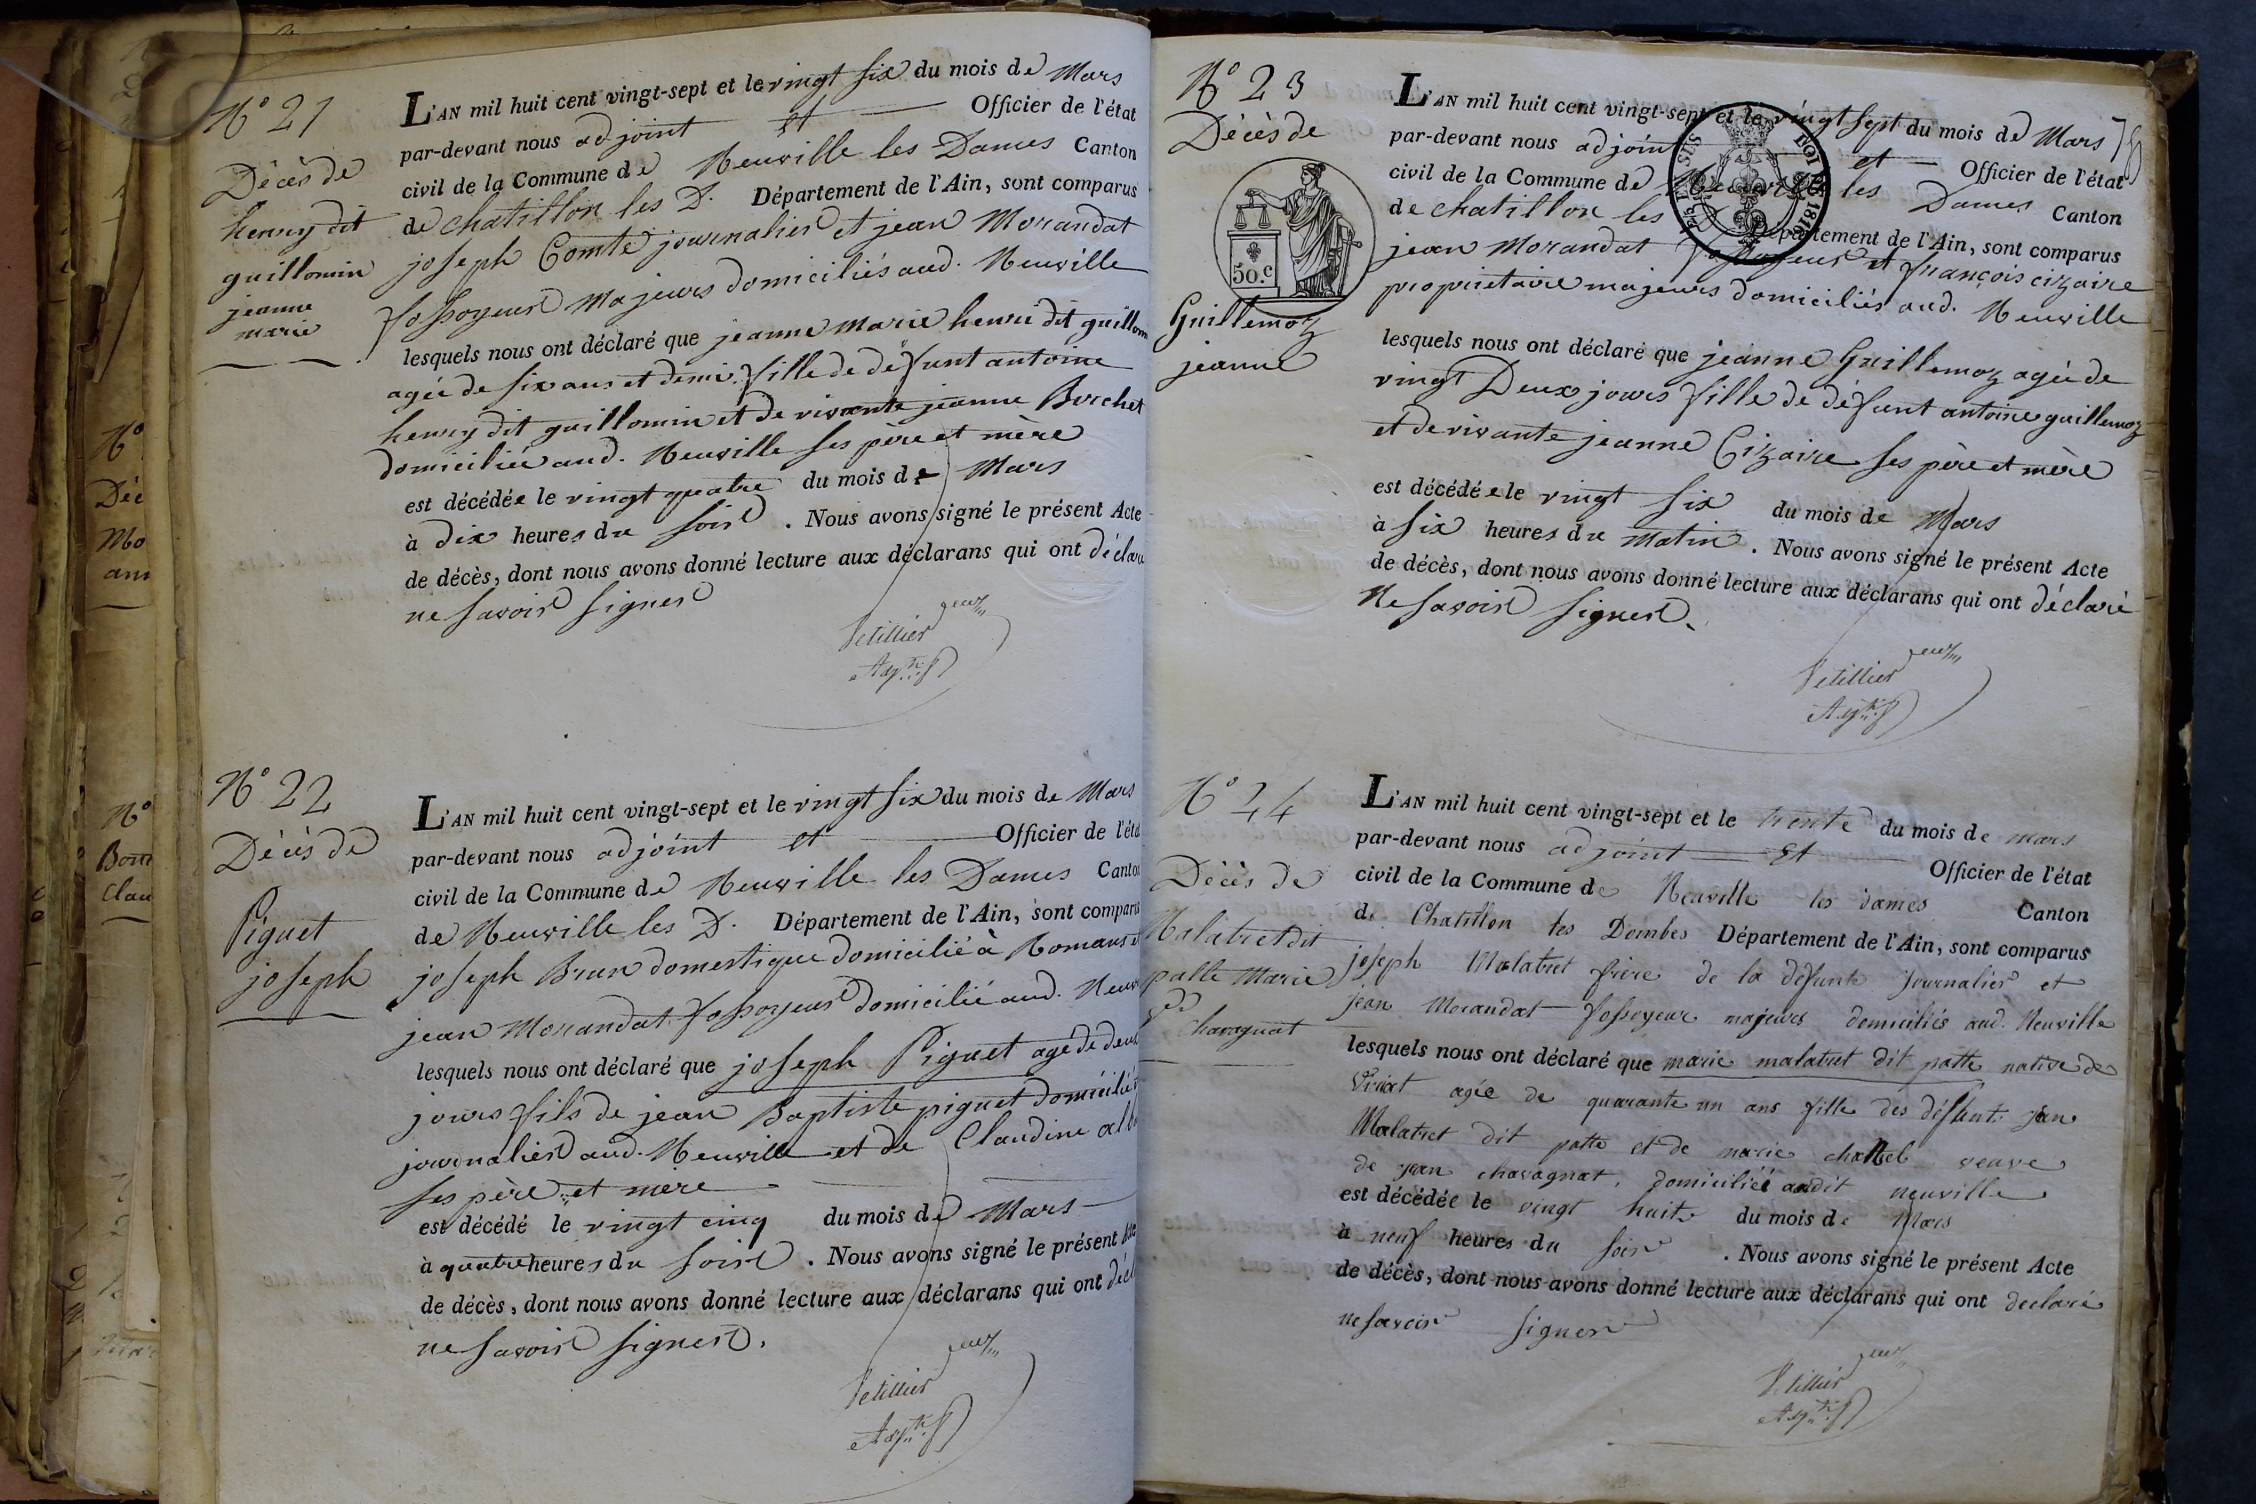 N° 21
Décès de
henry dit
guillomin
jeanne
marie
L'AN mil huit cent vingt-sept et le vingt six du mois de Mars
par-devant nous adjoint et Officier de l'état
civil de la Commune de Neuville les Dames Canton
de chatillon les D. Département de l'Ain, sont comparus
joseph Comte journalier et jean Morandat
fossoyeur Majeurs domiciliés aud. Neuville
lesquels nous ont déclaré que jeanne Marie henri dit guillom
agée de six ans et demi fille de défunt antoine
henry dit guillomin et de vivante jeanne Borchet
domiciliée aud. Neuville ses père et mère
est décédée le vingt quatre du mois de Mars
à dix heures du soir. Nous avons signé le présent Acte
de décès, dont nous avons donné lecture aux déclarans qui ont déclaré
ne savoir signer
Vetillier
N° 22
Décès de
Piguet
joseph
L'AN mil huit cent vingt-sept et le vingt six du mois de Mars
par-devant nous adjoint et Officier de l'état
civil de la Commune de Neuville les Dames Canton
de Neuville les D. Département de l'Ain, sont comparus
joseph Brun domestique domicilié à Romans et
jean Morandat fossoyeur domicilié aud. Neuv
lesquels nous ont déclaré que joseph Piguet agé de deux
jours fils de jean Baptiste piguet domicilié
journalier aud. Neuville et de Claudine alb
ses père et mère
est décédé le vingt cinq du mois de Mars
à quatre heures du soir. Nous avons signé le présent Acte
de décès, dont nous avons donné lecture aux déclarans qui ont décl
ne savoir signer.
Vetillier
N° 23
Décès de
50.c
Guillemoz
jeanne
L'AN mil huit cent vingt-sept et le vingt sept du mois de Mars
par-devant nous adjoint et Officier de l'état
civil de la Commune de Neuville les Dames Canton
de chatillon les D Département de l'Ain, sont comparus
jean Morandat fossoyeur et françois cizaire
propriétaire majeurs domiciliés aud. Neuville
lesquels nous ont déclaré que jeanne Guillemoz agée de
vingt Deux jours fille de défunt antoine guillemoz
et de vivante jeanne Cizaire ses père et mère
est décédée le vingt six du mois de Mars
à six heures du matin. Nous avons signé le présent Acte
de décès, dont nous avons donné lecture aux déclarans qui ont déclaré
Ne savoir signer.
Vetillier
N° 24
Décès de
Malatret dit
patte Marie
Chavagnat
L'AN mil huit cent vingt-sept et le trente du mois de mars
par-devant nous adjoint et Officier de l'état
civil de la Commune de Neuville les dames Canton
de Chatillon les Dombes Département de l'Ain, sont comparus
joseph Malatret frère de la défunte journalier et
jean Morandat fossoyeur majeurs domiciliés aud. Neuville
lesquels nous ont déclaré que marie malatret dit patte native de
Viriat agée de quarante un ans fille des défunts jean
Malatret dit patte et de marie chattel veuve
de jean chavagnat, domiciliée audit neuville
est décédée le vingt huit du mois de Mars
à neuf heures du soir. Nous avons signé le présent Acte
de décès, dont nous avons donné lecture aux déclarans qui ont declaré
ne savoir signer
Vetillier